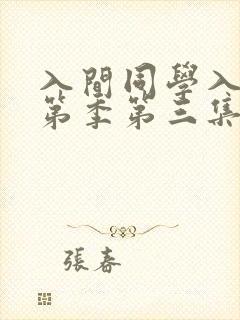 入間同學入
第季第三集
張春